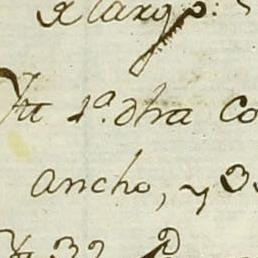 largo.
Yt 1ª. dha co
ancho, y 3
Yt 32